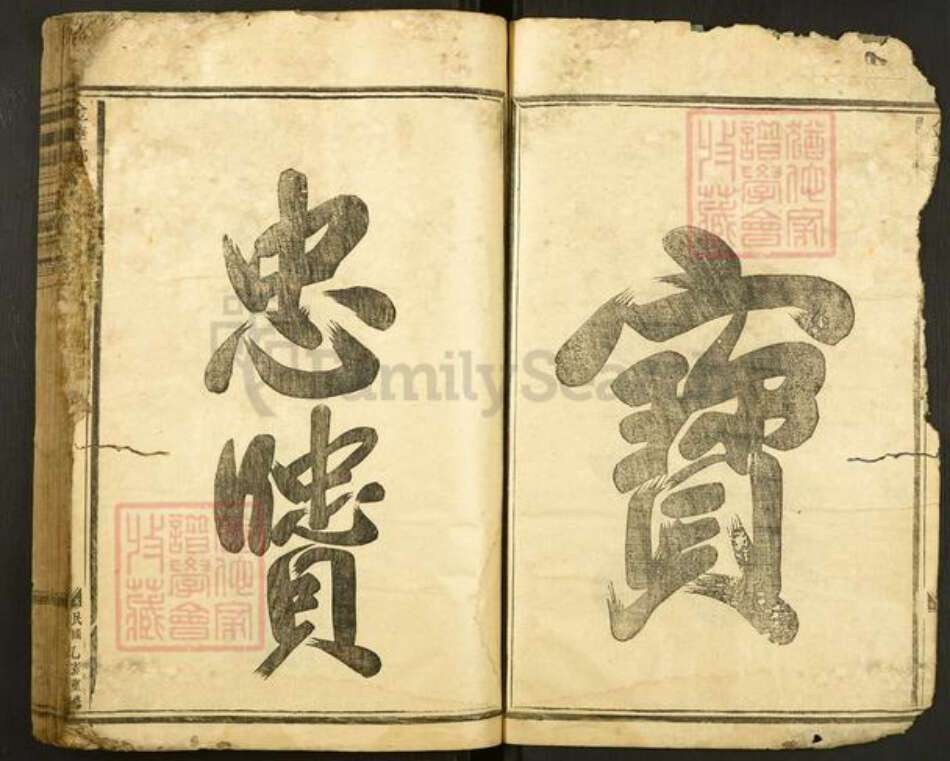 寶
猶他家
譜學會
收藏
忠
猶他家
譜學會
收藏
民國乙亥
FamilySearch